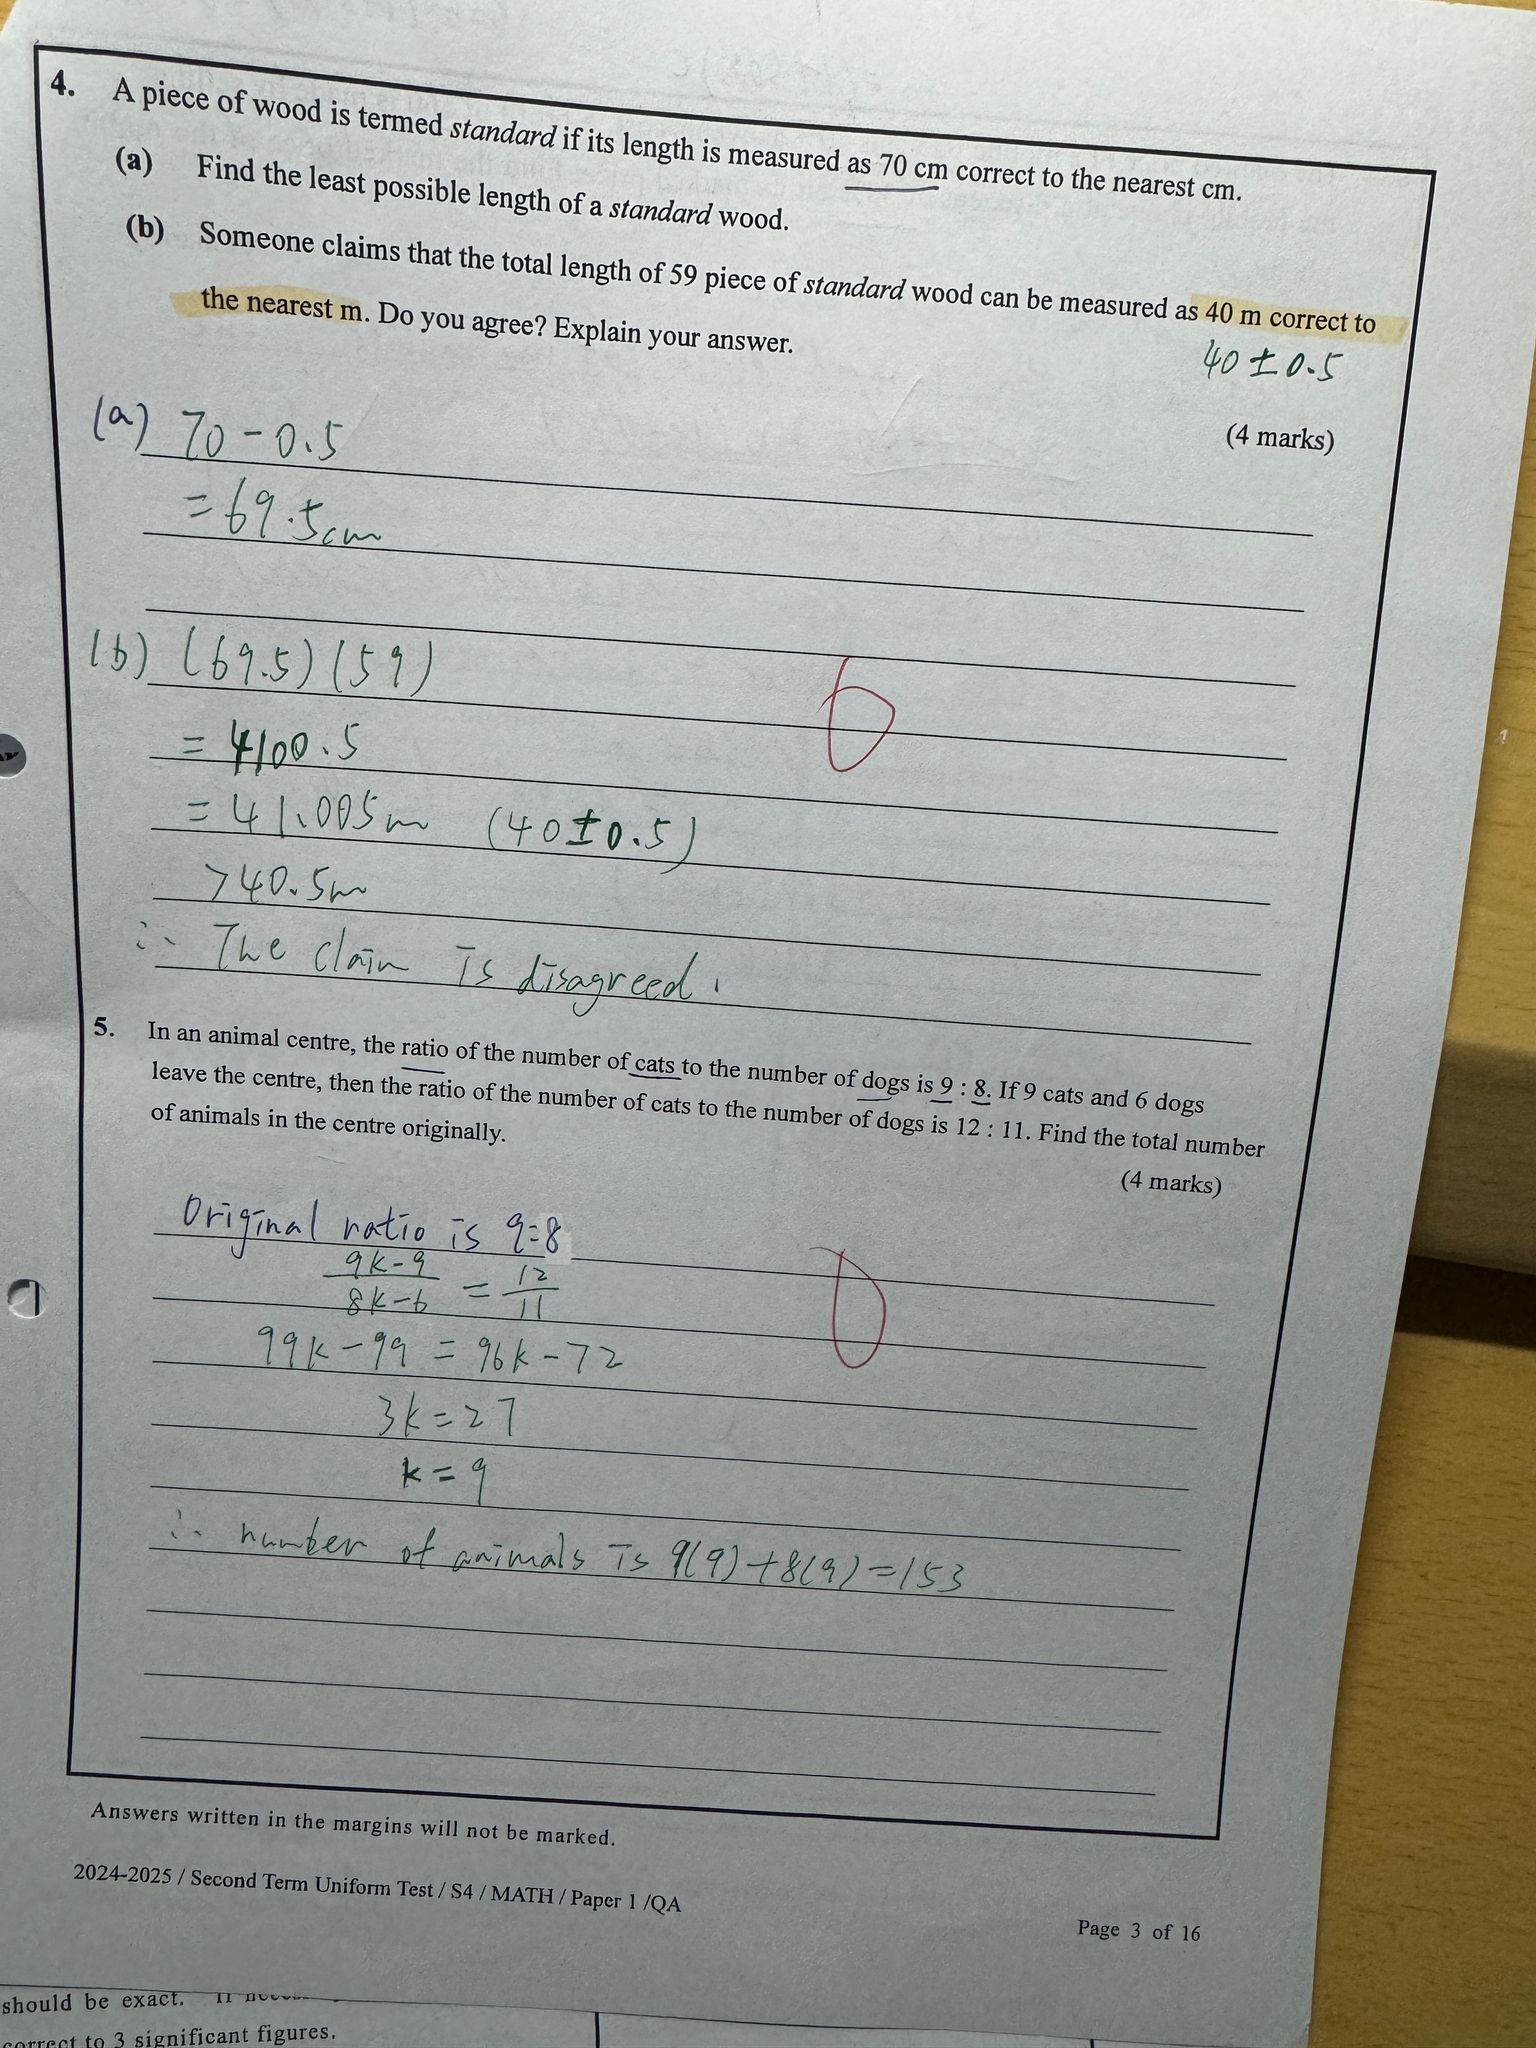 4. A piece of wood is termed standard if its length is measured as 70 cm correct to the nearest cm.
(a) Find the least possible length of a standard wood.
(b) Someone claims that the total length of 59 piece of standard wood can be measured as 40 m correct to
the nearest m. Do you agree? Explain your answer.
40 ± 0.5
(4 marks)
(a) 70 - 0.5
= 69.5cm
(b) (69.5)(59)
= 4100.5
= 41.005m (40±0.5)
>40.5m
∴ The claim is disagreed.
5. In an animal centre, the ratio of the number of cats to the number of dogs is 9 : 8. If 9 cats and 6 dogs
leave the centre, then the ratio of the number of cats to the number of dogs is 12 : 11. Find the total number
of animals in the centre originally.
(4 marks)
Original ratio is 9:8
9k-9 / 8k-6 = 12 / 11
99k-99 = 96k-72
3k=27
k=9
∴ number of animals is 9(9)+8(9)=153
Answers written in the margins will not be marked.
2024-2025 / Second Term Uniform Test / S4 / MATH / Paper 1 /QA
Page 3 of 16
should be exact.
correct to 3 significant figures.